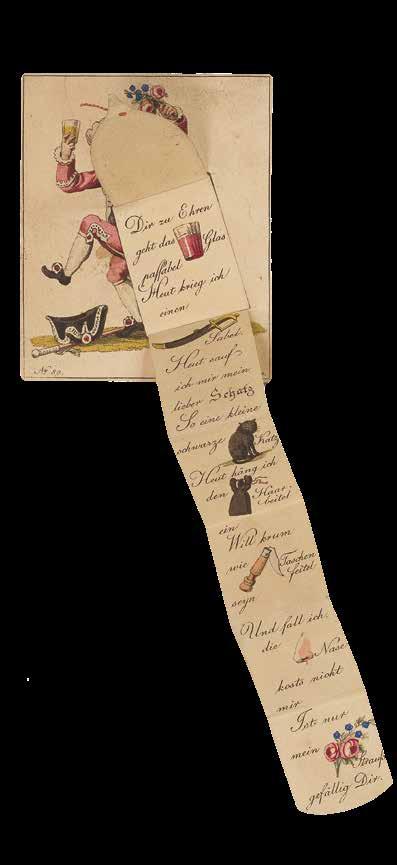 Dir zu Ehren
geht das Glas
passabel
Heut krieg ich
einen
Sabel.
Heut sauf
ich mir mein
lieber Schatz
So eine kleine
schwarze Katz
Heut häng ich
den Haar:
beitel
ein
Will krum
wie Taschen
feitel
seyn
Und fall ich
die Nase
kosts nicht
mir
Ists nur
mein Strauß
gefällig Dir.
Nr 80.